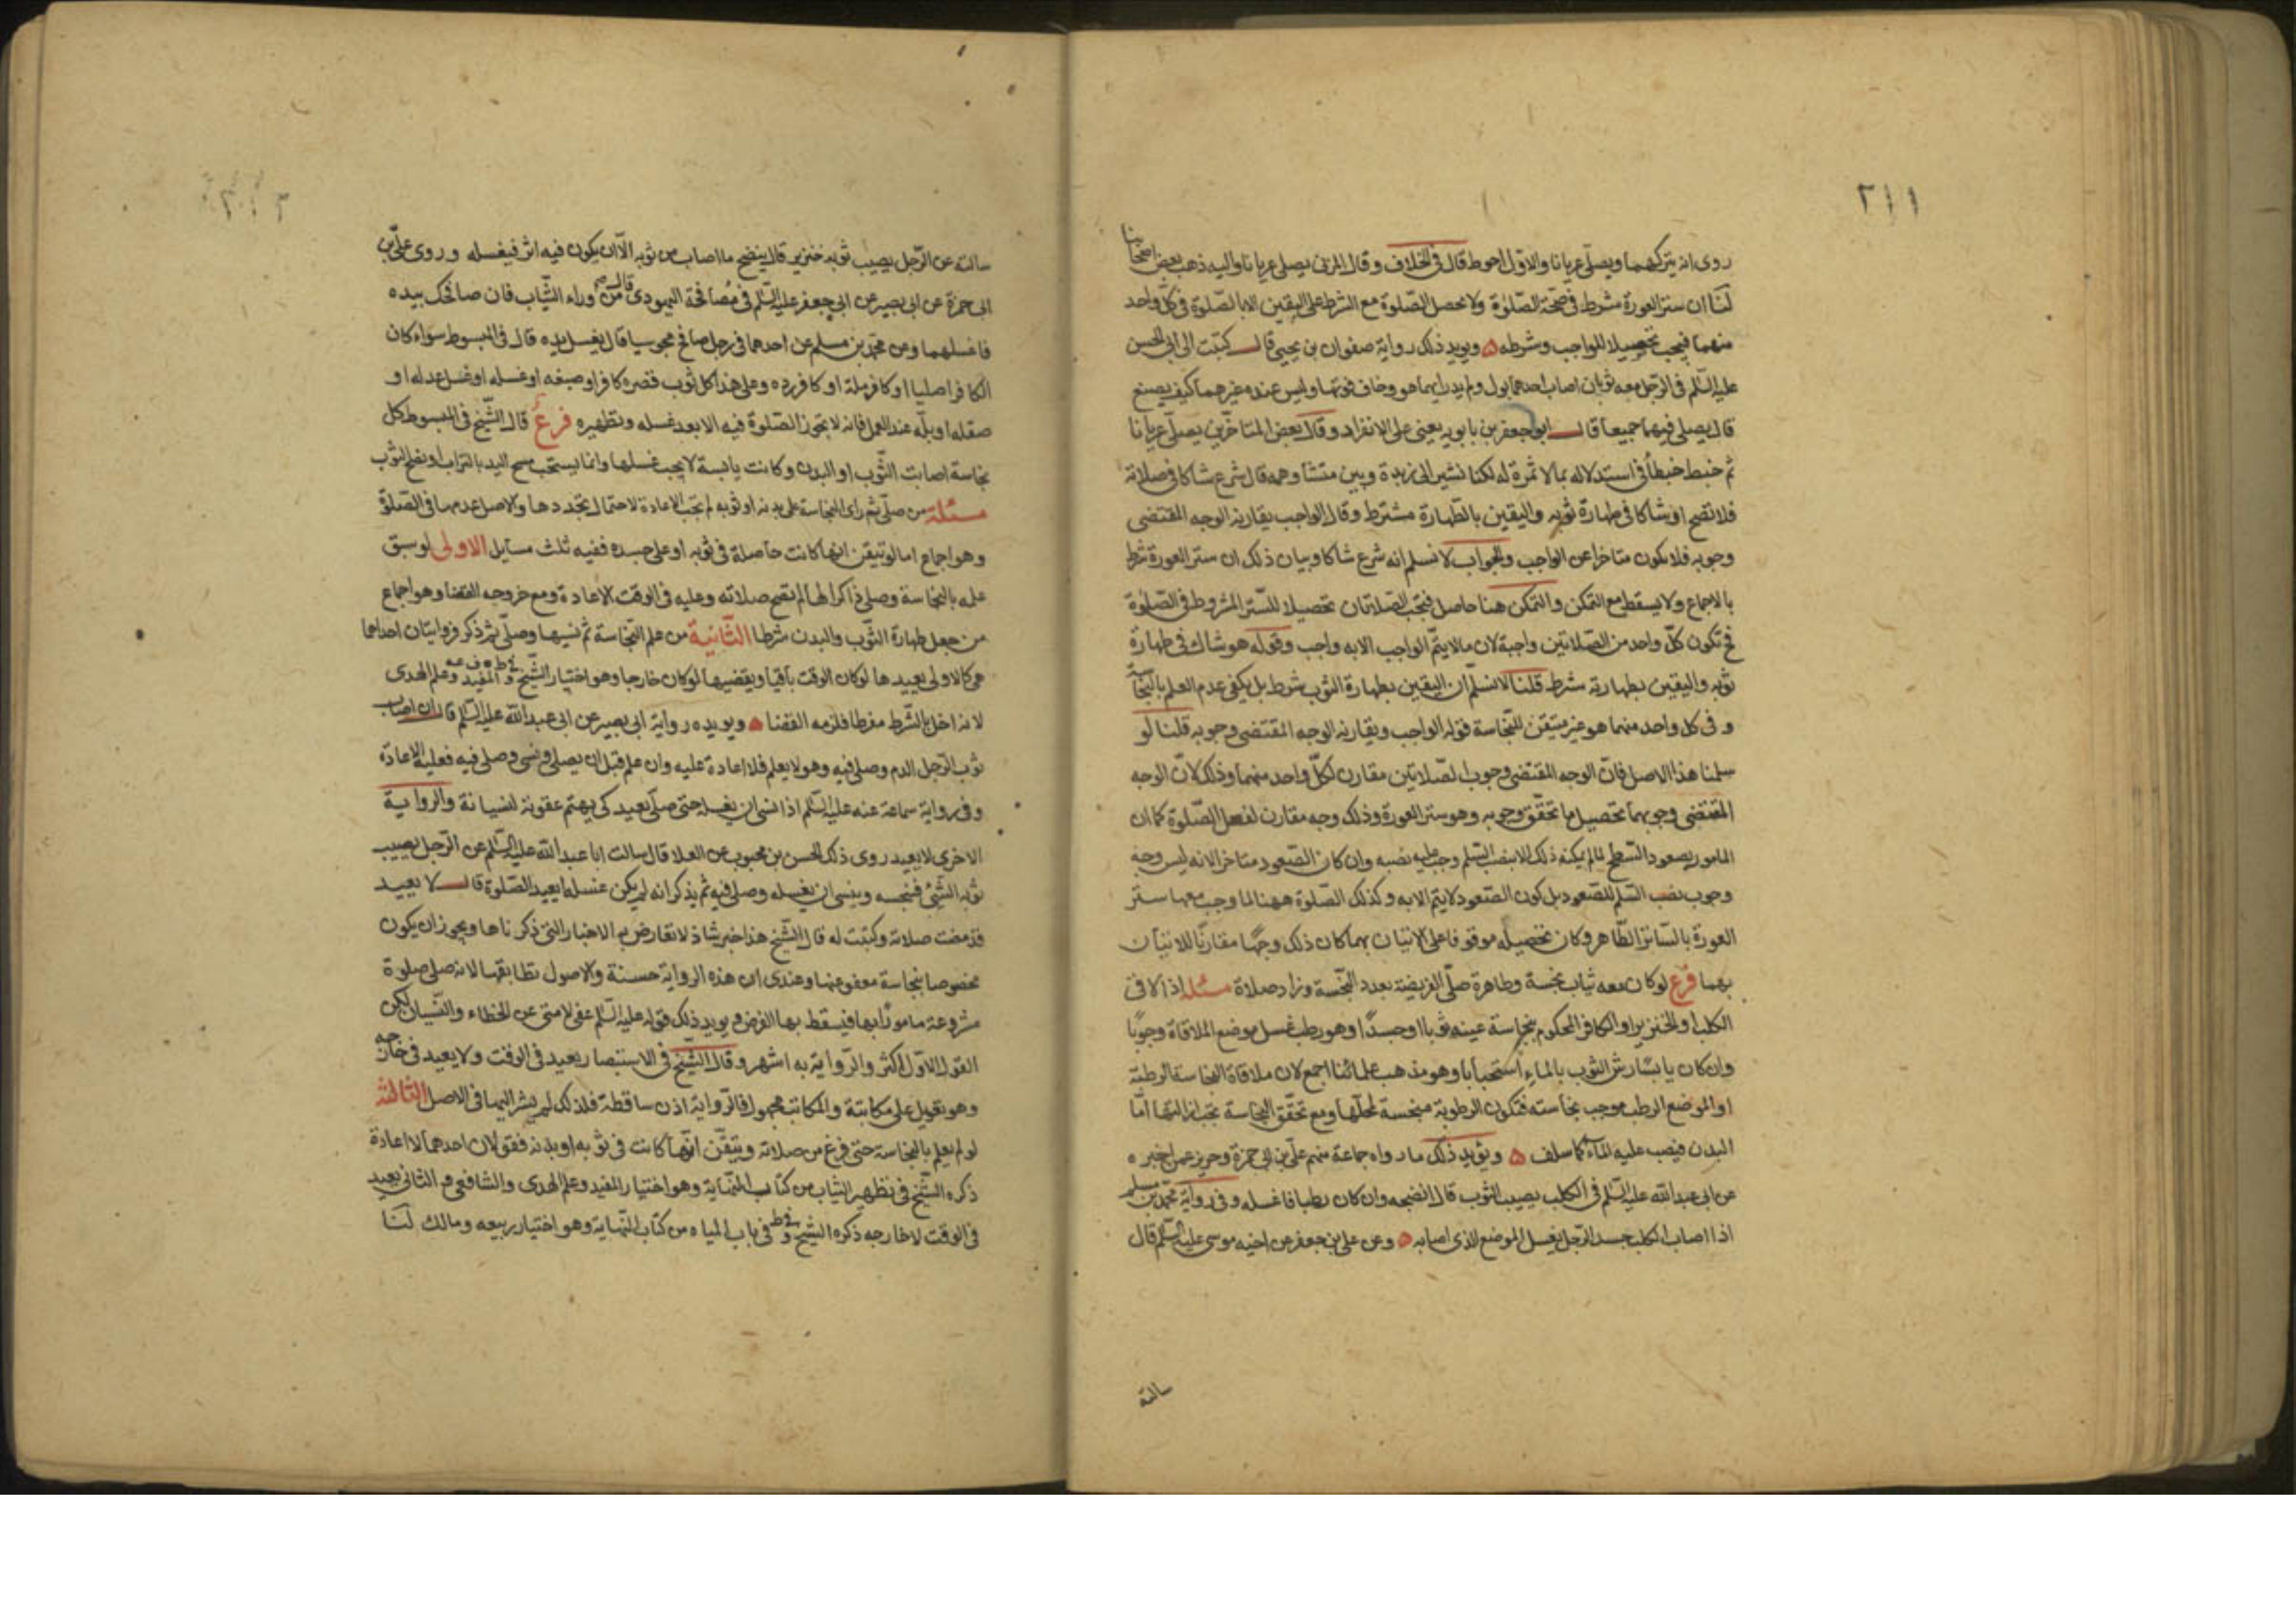 ٢١١
روى انه يتركهما ويصلى عريانا والاول احوط قال فى الخلاف وقال المزنى يصلى عريانا واليه ذهب بعض اصحابنا
لنا ان ستر العورة شرط فى صحة الصلوة ولا يحصل الصلوة مع الشرط على اليقين الا بالصلوة فى كل واحد
منهما فيجب تحصيلا للواجب وشرطه ويويد ذلك رواية صفوان بن يحيى قال كتبت الى ابى الحسن
عليه السلم فى الرجل معه ثوبان اصاب احدهما بول ولم يدر ايهما هو وخاف فوتها وليس عنده غيرهما كيف يصنع
قال يصلى فيهما جميعا قال ابو جعفر بن بابويه يعنى على الانفراد وقال بعض المتاخرين يصلى عريانا
ثم خبط خبطا فى استدلاله بما لا ثمرة له لكنا نشير الى زبدة ويبين منشا وهمه قال شرع شاكا فى صلاته
فلا تصح او شاكا فى طهارة ثوبه واليقين بالطهارة مشترط وقال الواجب يقارنه الوجه المقتضى
وجوبه فلا يكون متاخرا عن الواجب والجواب لا نسلم انه شرع شاكا وبيان ذلك ان ستر العورة شرط
بالاجماع ولا يسقط مع التمكن والتمكن هنا حاصل فتجب الصلاتان تحصيلا للستر المشروط فى الصلوة
فح تكون كل واحد من الصلاتين واجبة لان ما لا يتم الواجب الا به واجب وقوله هو شاك فى طهارة
ثوبه واليقين بطهارته شرط قلنا لا نسلم ان اليقين بطهارة الثوب شرط بل يكفى عدم العلم بالنجاسة
و فى كل واحد منهما هو غير متيقن للنجاسة قوله الواجب ويقارنه الوجه المقتضى وجوبه قلنا لو
سلمنا هذا الاصل فان الوجه المقتضى وجوب الصلاتين مقارن لكل واحد منهما وذلك لان الوجه
المقتضى وجوبهما تحصيل ما تحقق وجوبه وهو ستر العورة وذلك وجه مقارن لفعل الصلوة كما ان
المامور بصعود السطح لما لم يمكنه ذلك الا بنصب السلم وجب عليه نصبه وان كان الصعود متاخرا لانه ليس وجه
وجوب نصب السلم للصعود بل كون الصعود لا يتم الا به وكذلك الصلوة ههنا لما وجب معها ستر
العورة بالساتر الطاهر وكان تحصيله موقوفا على الاتيان بهما كان ذلك وجها مقارنا للاتيان
بهما فرع لو كان معه ثياب نجسة وطاهرة صلى الفريضة بعدد النجسة وزاد صلاة مسئلة اذا لاقى
الكلب او الخنزير او الكافر المحكوم بنجاسة عينه ثوبا او جسدا وهو رطب غسل موضع الملاقاة وجوبا
وان كان يابسا رش الثوب بالماء استحبابا وهو مذهب علمائنا اجمع لان ملاقاة النجاسة الرطبة
او الموضع الرطب موجب نجاسته فتكون الرطوبة منجسة لمحلها ومع تحقق النجاسة تجب ازالتها اما
البدن فيصب عليه الماء كما سلف ويؤيد ذلك ما رواه جماعة منهم على بن ابى حمزة وحريز عمن اخبره
عن ابى عبد الله عليه السلم فى الكلب يصيب الثوب قال انضحه وان كان رطبا فاغسله وفى رواية محمد بن مسلم
اذا اصاب الكلب جسد الرجل يغسل الموضع الذى اصابه وعن على بن جعفر عن اخيه موسى عليه السلم قال
سالته
سالته عن الرجل يصيب ثوبه خنزير قال ينضح ما اصاب من ثوبه الا ان يكون فيه اثر فيغسله وروى على بن
ابى حمزة عن ابى بصير عن ابى جعفر عليه السلم فى مصافحة اليهودى قال من وراء الثياب فان صافحك بيده
فاغسلهما وعن محمد بن مسلم عن احدهما فى رجل صافح مجوسيا قال يغسل يده قال فى المبسوط سواء كان
الكافر اصليا او كافر ملة او كافر ردة وعلى هذا كل ثوب قصره كافر او صبغه او غسله او غسل غزله او
صقله او بله عند العمل فانه لا تجوز الصلوة فيه الا بعد غسله وتطهيره فرع قال الشيخ فى المبسوط كل
نجاسة اصابت الثوب او البدن وكانت يابسة لا يجب غسلها وانما يستحب مسح اليد بالتراب او نضح الثوب
مسئلة من صلى ثم راى النجاسة على بدنه او ثوبه لم تجب الاعادة لاحتمال تجددها والاصل عدمها فى الصلوة
وهو اجماع اما لو تيقن انها كانت حاصلة فى ثوبه او على جسده ففيه ثلث مسايل الاولى لو سبق
علمه بالنجاسة وصلى ذاكرا لها لم تصح صلاته وعليه فى الوقت الاعادة ومع خروجه القضا وهو اجماع
من جعل طهارة الثوب والبدن شرطا الثانية من علم النجاسة ثم نسيها وصلى ثم ذكر فروايتان احداهما
هى كالاولى يعيدها لو كان الوقت باقيا ويقضيها لو كان خارجا وهو اختيار الشيخ والمفيد وعلم الهدى
لانه اخل بالشرط مفرطا فلزمه القضا ويويده رواية ابى بصير عن ابى عبد الله عليه السلم قال ان اصاب
ثوب الرجل الدم وصلى فيه وهو لا يعلم فلا اعادة عليه وان علم قبل ان يصلى ونسى وصلى فيه فعليه الاعادة
وفى رواية سماعة عنه عليه السلم اذا نسى ان يغسله حتى صلى يعيد كى يهتم عقوبة لنسيانه والرواية
الاخرى لا يعيد روى ذلك الحسن بن محبوب عن العلا قال سالت ابا عبد الله عليه السلم عن الرجل يصيب
ثوبه الشئ فنجسه وينسى ان يغسله وصلى فيه ثم يذكر انه لم يكن غسله ايعيد الصلوة قال لا يعيد
قد مضت صلاته وكتبت له قال الشيخ هذا خبر شاذ لا تعارض به الاخبار التى ذكرناها ويجوز ان يكون
مخصوصا بنجاسة معفو عنها وعندى ان هذه الرواية حسنة والاصول تطابقها لانه صلى صلوة
مشروعة مامورا بها فيسقط بها الفرض ويويد ذلك قوله عليه السلم عفى لامتى عن الخطاء والنسيان لكن
القول الاول اكثر والرواية به اشهر وقال الشيخ فى الاستبصار يعيد فى الوقت ولا يعيد فى خارجه
وهو تعويل على مكاتبة والمكاتب مجهول فالرواية اذن ساقطة فلذلك لم يشر اليها فى الاصل الثالثة
لو لم يعلم بالنجاسة حتى فرغ من صلاته وتيقن انها كانت فى ثوبه او بدنه فقولان احدهما لا اعادة
ذكره الشيخ فى تطهير الثياب من كتاب النهاية وهو اختيار المفيد وعلم الهدى والشافعى والثانى يعيد
فى الوقت لا خارجه ذكره الشيخ فى باب المياه من كتاب النهاية وهو اختيار ربيعه ومالك لنا